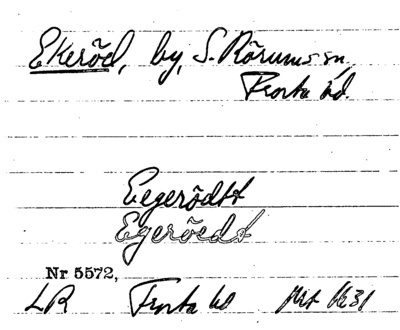 Ekeröd, by, S. Rörums sn,
Frosta hd.
Eegerödtt
Egeröedt
Nr 5572,
LR Frosta hd